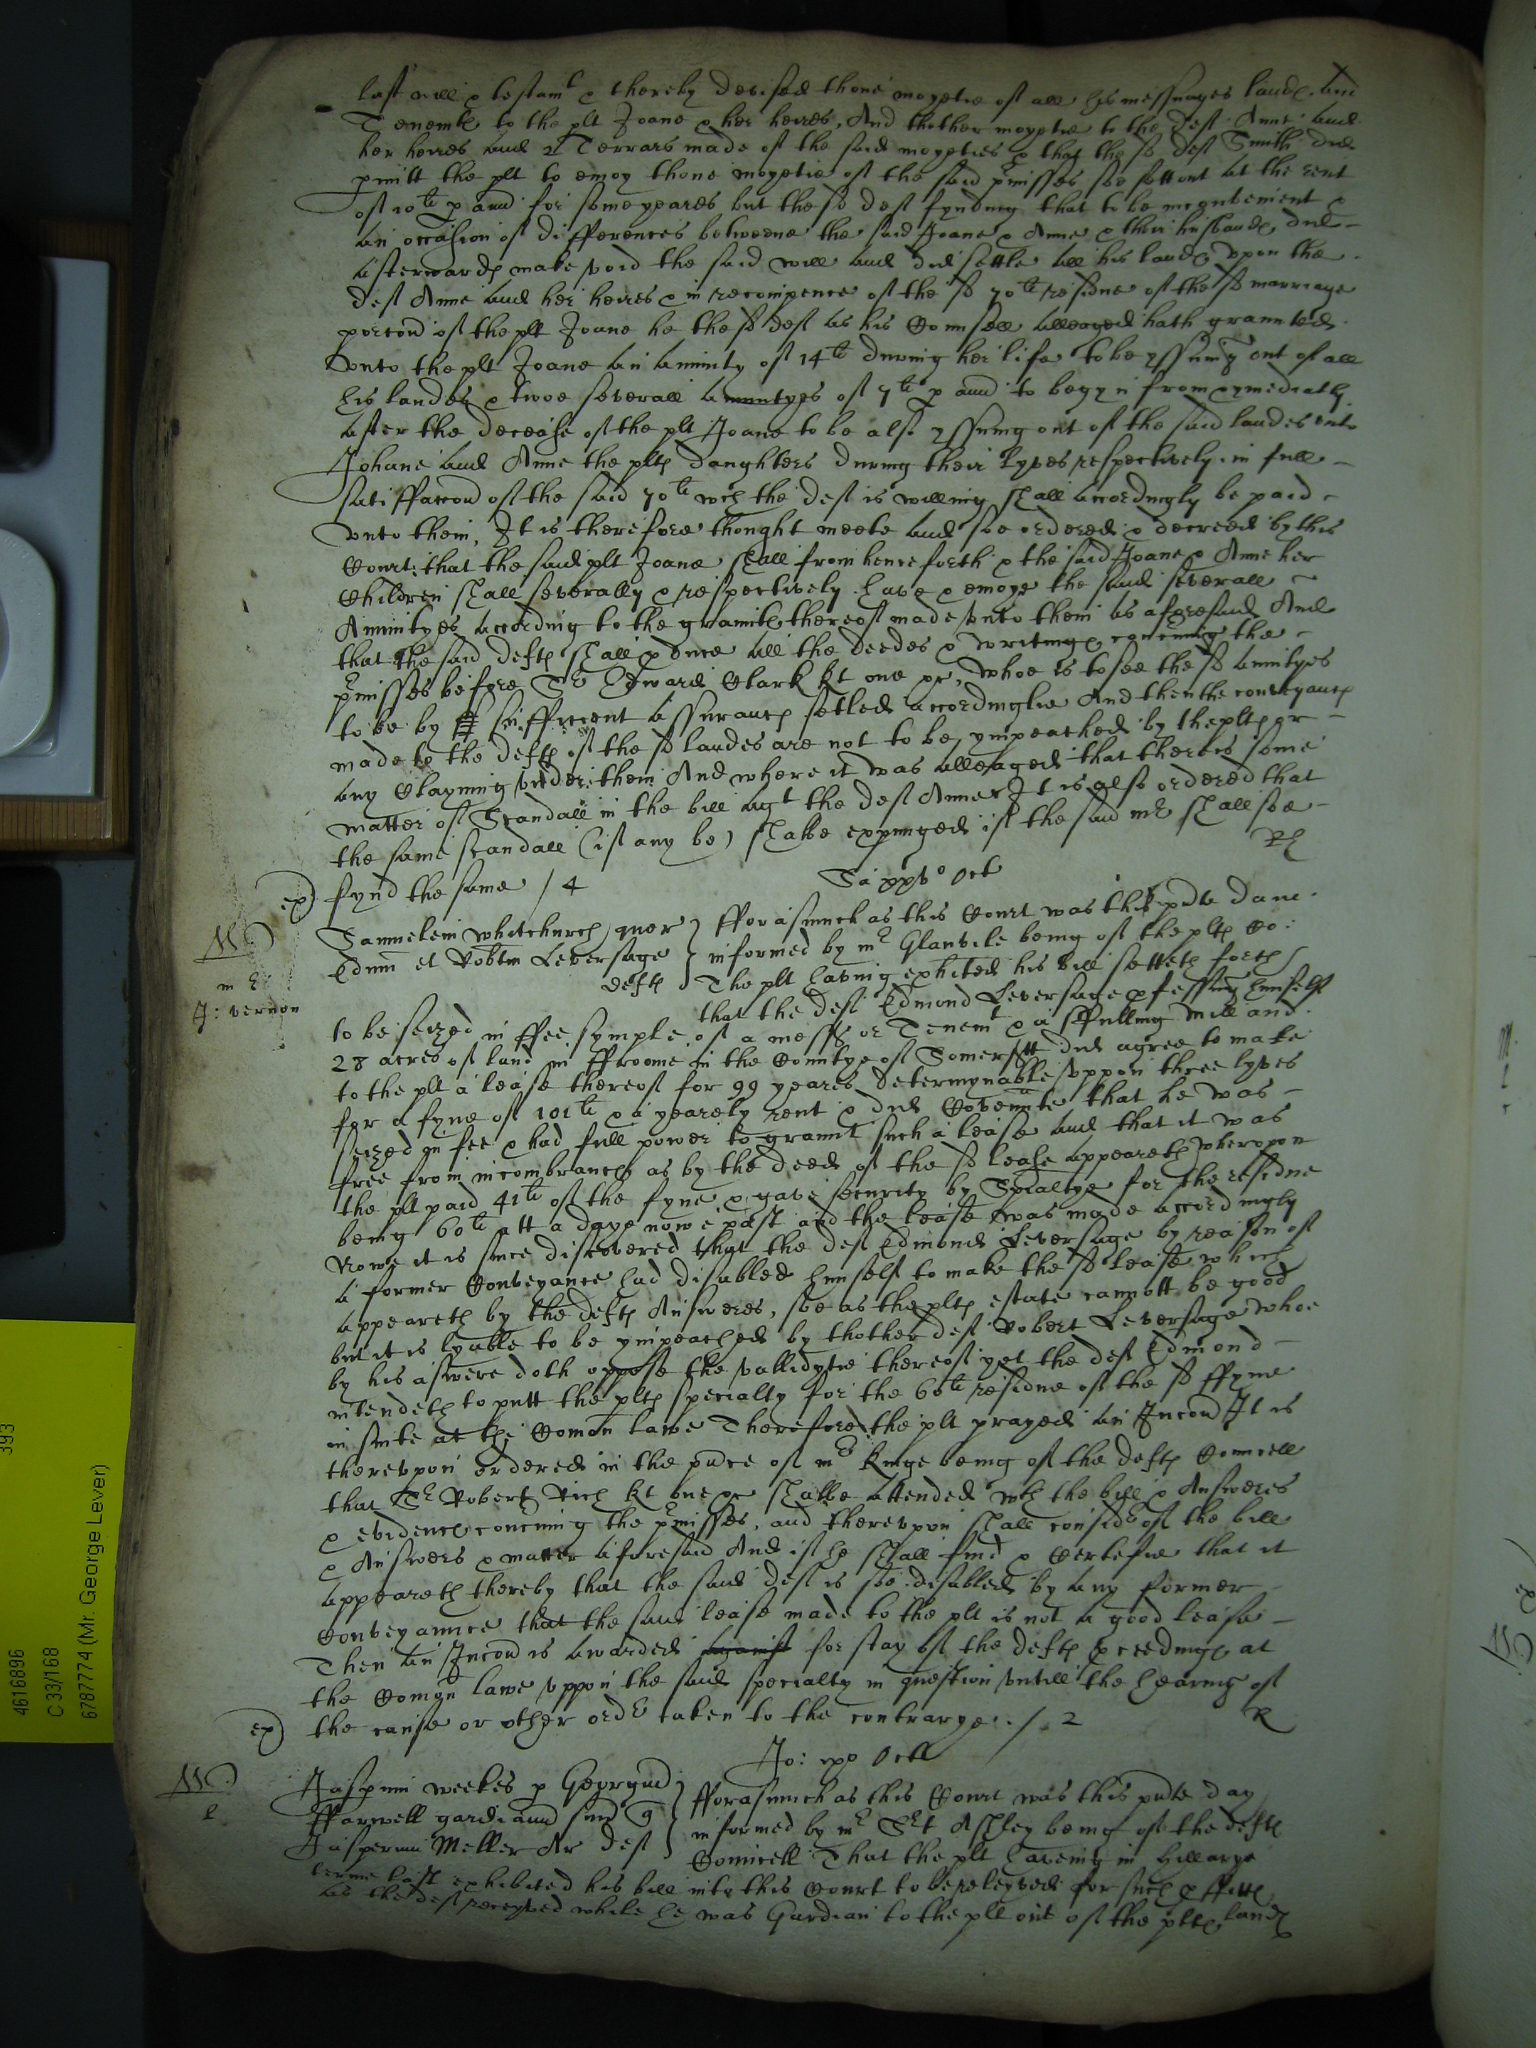 last will & testamt & thereby devised thone moyetie of all his messuages landes and
Tenemtes to the plt Joane & her heires, And thother moyetie to the deft Anne and
her heires and 2 Terrars made of the said moyeties & that the sd deft Smith did
pmitt the plt to enioy thone moyetie of the said pmisses soe sett out at the rent
of 10li p annu for some yeares but the sd deft fynding that to be inconvenient &
an occasion of differences betweene the said Joane & Anne & their husbandes did
afterwardes make void the said will and did settle all his landes vpon the
deft Anne and her heires & in recompence of the sd 70li residue of the sd marriage
porcon of the plt Joane he the sd deft as his Counsell alleaged hath graunted
vnto the plt Joane an annuity of 14li during her life to be yssuing out of all
his landes & twoe severall annuityes of 7li p annu to begyn from & ymediatly
after the decease of the plt Joane to be also yssuing out of the said landes vnto
Johane and Anne the pltes daughters during their lyves respectively in full
satisfaccon of the said 70li wch the deft is willing shall accordingly be paid
vnto them, It is therefore thought meete and soe ordered & decreed by this
Court that the said plt Joane shall from henceforth & the said Joane & Anne her
Children shall severally & respectively have & enioye the said severall
Annuityes according to the grauntes thereof made vnto them as aforesaid And
that the said deftes shall pduce all the deedes & writinges concning the
pmisses before Sr Edward Clark kt one &c, whoe is to see the sd annuityes
to be by sufficient assurances setled accordinglie And then the conveyances
made to the deftes of the sd landes are not to be ympeached by the pltes or
any Clayming vnder them And where it was alleaged that there is some
matter of Scandall in the bill agt the deft Anne It is also ordered that
the same scandall (if any be) shalbe expunged if the said mr shall soe
fynd the same / 4
Sa xxvo Oct
Samuelem Whitchurch quer } fforasmuch as this Court was this pnte daie
Edmu et Robtm Leversage } informed by mr Glanvile being of the pltes Co:
deftes } The plt having exhited his bill setteth forth
m r
J: vernon
that the deft Edmond Leversage pfessing himself
to be seized in ffee symple of a messe or Tenemt & a ffulling mill and
28 acres of land in ffroome in the Countye of Somersett did agree to make
to the plt a lease thereof for 99 yeares determynable vppon three lyves
for a fyne of 101li & a yearely rent & did Covennte that he was
seized in fee & had full power to graunt such a lease and that it was
free from incombrances as by the deed of the sd lease appeareth wherevpon
the plt paid 41li of the fyne & gave security by Spialtye for the residue
being 60li att a daye nowe past and the lease was made accordingly
Nowe it is since discovered that the deft Edmond Leversage by reason of
a former Conveyance had disabled himself to make the sd lease which
appeareth by the deftes Answeres, soe as the pltes estate cannott be good
but it is lyable to be ympeached by thother deft Robert Leversage whoe
by his aswere doth oppose the vallidytie thereof yet the deft Edmond
intendeth to putt the pltes specialty for the 60li residue of the sd ffyne
in suite at the Comon lawe Therefore the plt prayed an Iniuncon It is
therevpon ordered in the pnce of mr Kinge being of the deftes Councell
that Sr Robert Rich kt one &c shalbe attended wth the bill & Answeres
& evidences concning the pmisses, and therevpon shall consider of the bill
& Answers & matter aforesaid And if he shall find & Certefie that it
appeareth thereby that the said deft is soe disabled by any former
Conveyannce that the said lease made to the plt is not a good lease
Then an Iniuncon is awarded against for stay of the deftes pceedinges at
the Comon lawe vppon the said specialty in question vntill the hearing of
the cause or other order taken to the contrarye. / 2 R
Jo: xxo Octo
Jasperum weekes p Georgiu } fforasmuch as this Court was this pnte day
ffarwell gardianu suu q } informed by mr Srt Ashley being of the deftes
Jasperum Meller Ar deft } Councell That the plt haveing in Hillarye
terme last exhibited his bill into this Court to be releyved for such pffittes
as the deft receyved while he was Gardian to the plt out of the pltes landes
393
4616896
C 33/168
6787774 (Mr. George Lever)